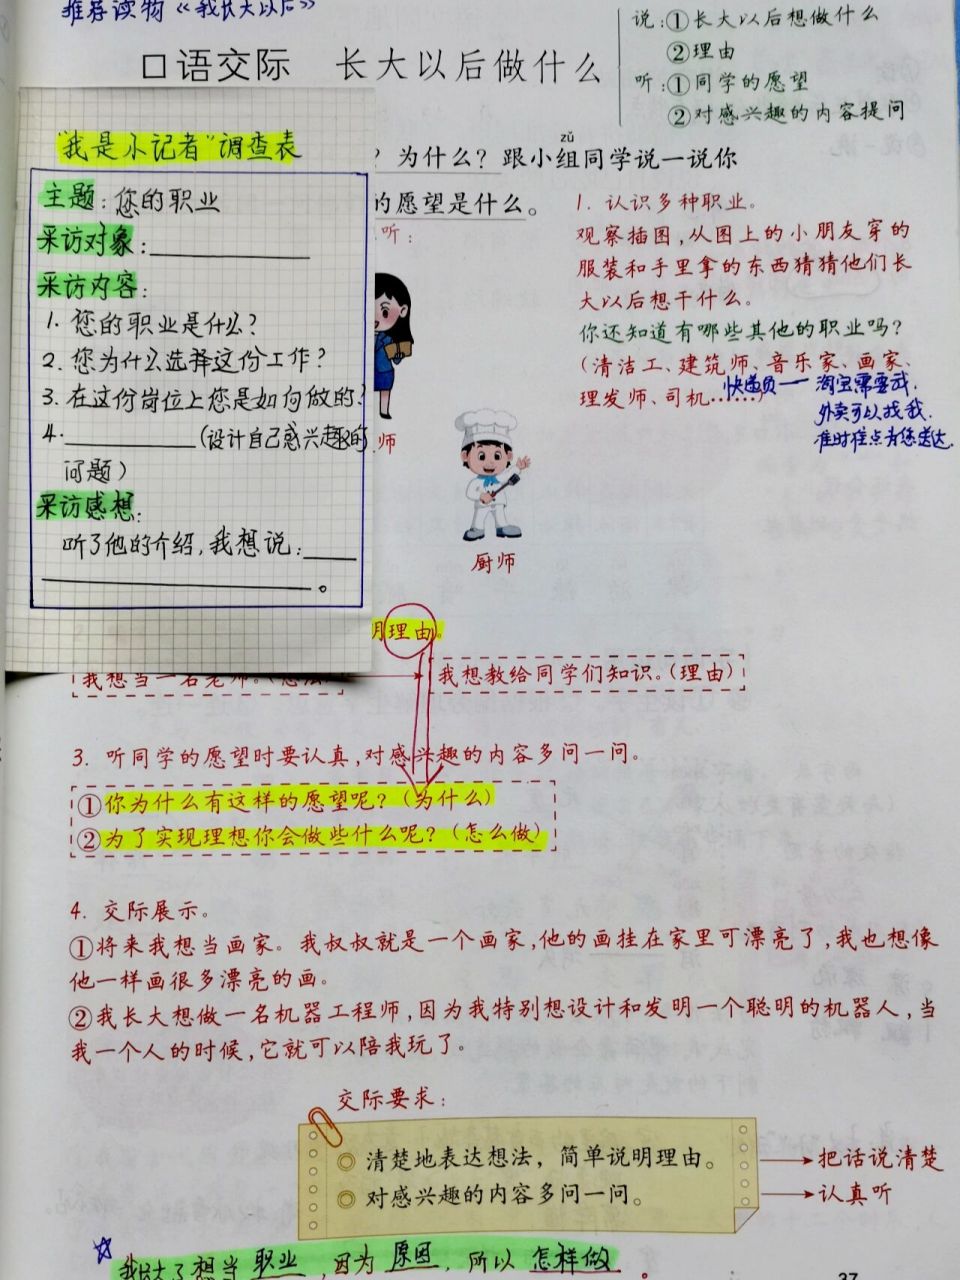 推荐读物《我长大以后》
口语交际 长大以后做什么
说:①长大以后想做什么
②理由
听:①同学的愿望
②对感兴趣的内容提问
"我是小记者"调查表
主题:您的职业
采访对象:
采访内容:
1.您的职业是什么?
2.您为什么选择这份工作?
3.在这份岗位上您是如何做的?
4.(设计自己感兴趣的
问题)
采访感想:
听了他的介绍,我想说:
。
zǔ
?为什么?跟小组同学说一说你
的愿望是什么。
听:
师
厨师
1. 认识多种职业。
观察插图,从图上的小朋友穿的
服装和手里拿的东西猜猜他们长
大以后想干什么。
你还知道有哪些其他的职业吗?
(清洁工、建筑师、音乐家、画家、
理发师、司机……)
快递员—淘宝需要我.
外卖可以找我.
准时准点为您送达.
理由。
我想当一名老师。(想法)
我想教给同学们知识。(理由)
3. 听同学的愿望时要认真,对感兴趣的内容多问一问。
①你为什么有这样的愿望呢?(为什么)
②为了实现理想你会做些什么呢?(怎么做)
4. 交际展示。
①将来我想当画家。我叔叔就是一个画家,他的画挂在家里可漂亮了,我也想像
他一样画很多漂亮的画。
②我长大想做一名机器工程师,因为我特别想设计和发明一个聪明的机器人,当
我一个人的时候,它就可以陪我玩了。
交际要求:
◎ 清楚地表达想法,简单说明理由。
◎ 对感兴趣的内容多问一问。
把话说清楚
认真听
☆ 我长大了想当 职业,因为 原因,所以 怎样做。
37